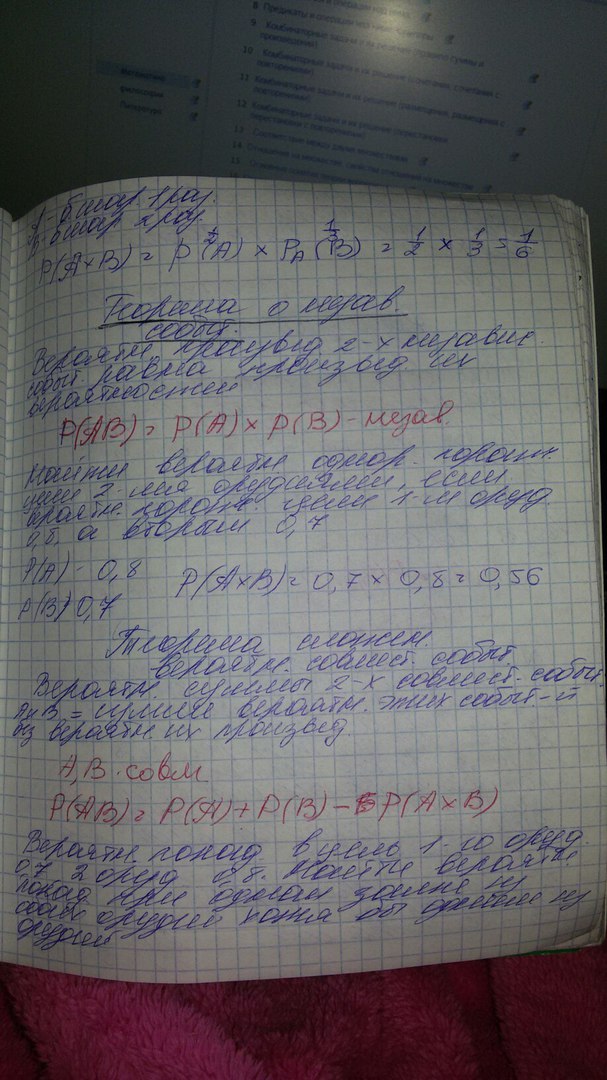 8 Предикаты и операции
9 Комбинаторные задачи и их решение (правило суммы и
произведения)
10 Комбинаторные задачи и их решение (сочетания, сочетания с
повторениями)
11 Комбинаторные задачи и их решение (размещения, размещения с
повторениями)
12 Комбинаторные задачи и их решение (перестановки
перестановки с повторениями)
13 Соответствие между двумя множествами
14 Отношения на множестве, свойства отношений на множестве
15
математика
философия
Литература
А - б. шар. 1 раз.
В - б шар. 2 раз.
1/2 1/3
P(A×B) = P(A) × P_A(B) = 1/2 × 1/3 = 1/6
Теорема о незав.
событ.
Вероятн. произвед 2-х независ.
событ равна произвед их
вероятностей
P(AB) = P(A) × P(B) - незав.
Найти вероятн. однор. пораж.
цели 2-мя орудиями, если
вероятн. пораж. цели 1-м оруд.
0,8, а вторым 0,7
P(A) - 0,8
P(A×B) = 0,7 × 0,8 = 0,56
P(B) 0,7
Теорема сложен.
вероятн. совмест. событ
Вероятн суммы 2-х совмест. событ.
А и В = сумме вероятн. этих событ-й
без вероятн их произвед.
А, В - совм.
P(AB) = P(A) + P(B) - P(A×B)
Вероятн. попад в цель 1-го оруд.
0,7 2 оруд 0,8. Найти вероятн
попад при одном залпе из
обоих орудий хотя бы одним из
орудий